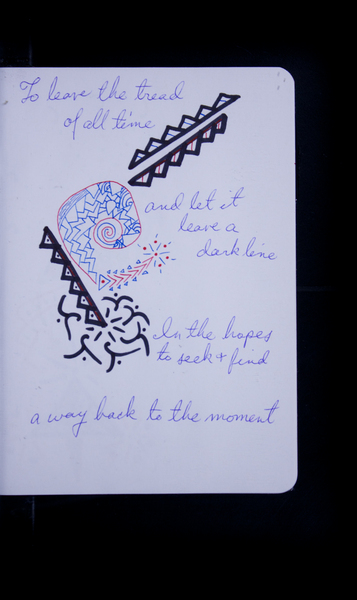 To leave the tread
of all time
and let it
leave a
dark line
In the hopes
to seek + find
a way back to the moment